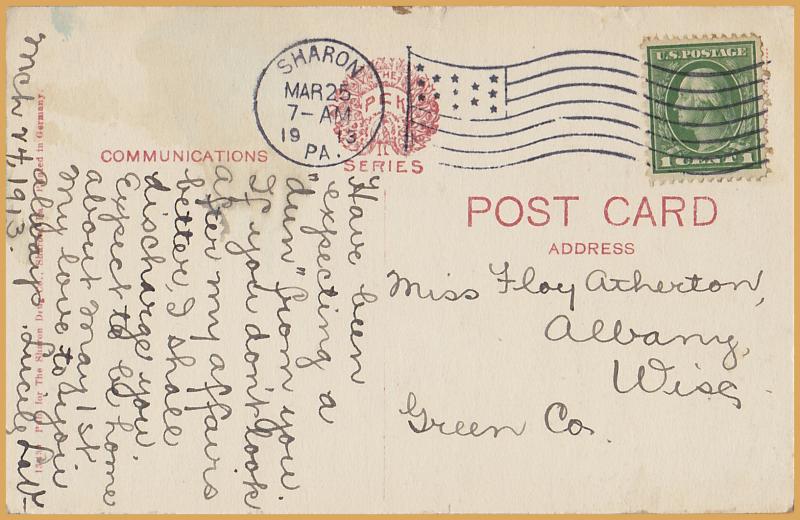 SHARON
MAR 25
7-AM
1913
PA.
THE
PCK
SERIES
U.S. POSTAGE
1 CENT 1
COMMUNICATIONS
POST CARD
ADDRESS
Miss Floy Atherton,
Albany,
Wis.
Green Co.
Have been
"expecting a
dun" from you.
If you don't look
after my affairs
better, I shall
discharge you.
Expect to be home
about May 1st
My love to you
Always. Lucile
Mch 24, 1913.
Pub. for The Sharon Drug Co., Printed in Germany.